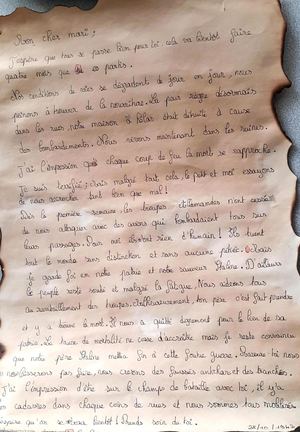 Mon cher mari :
J'espère que tous se passe bien pour toi cela va bientôt faire
quatre mois que tu es partis.
Nos conditions de vies se dégradent de jour en jour, nous
peinons à trouver de la nourriture. La peur règne désormais
dans les rues, notre maison a hélas était détruite à cause
des bombardements. Nous vivons maintenant dans les ruines.
J'ai l'impression qu'à chaque coup de feu la mort se rapproche.
Je suis terrifié, mais malgré tout cela, le petit et moi essayons
de nous accrocher tant bien que mal !
Dès la première semaine, les troupes allemandes n'ont cessées
de nous attaquer avec des avions qui bombardaient tous sur
leurs passages. Pour moi ils n'ont rien d'humain ! Ils tuent
tout le monde sans distinction et sans aucune pitié. Mais
je garde foi en notre patrie et notre sauveur Staline. D'ailleurs
le peuple reste soudé et malgré la fatigue. Nous aidons tous
au ravitaillement des troupes. Malheureusement, ton père s'est fait prendre
et y a trouvé la mort. Il nous a quitté dignement pour le bien de sa
patrie. Le taux de mortalité ne cesse d'accroître mais je reste convaincu
que notre père Staline mettra fin à cette foutue guerre.
nous laisserons pas faire, nous creusons des fossés antichars et des tranchées.
J'ai l'impression d'être sur le champs de bataille avec toi, il y a
des cadavres dans chaque coins de rues et nous sommes tous mobilisés
J'espère qu'on se reverra bientôt ! Prends soin de toi.